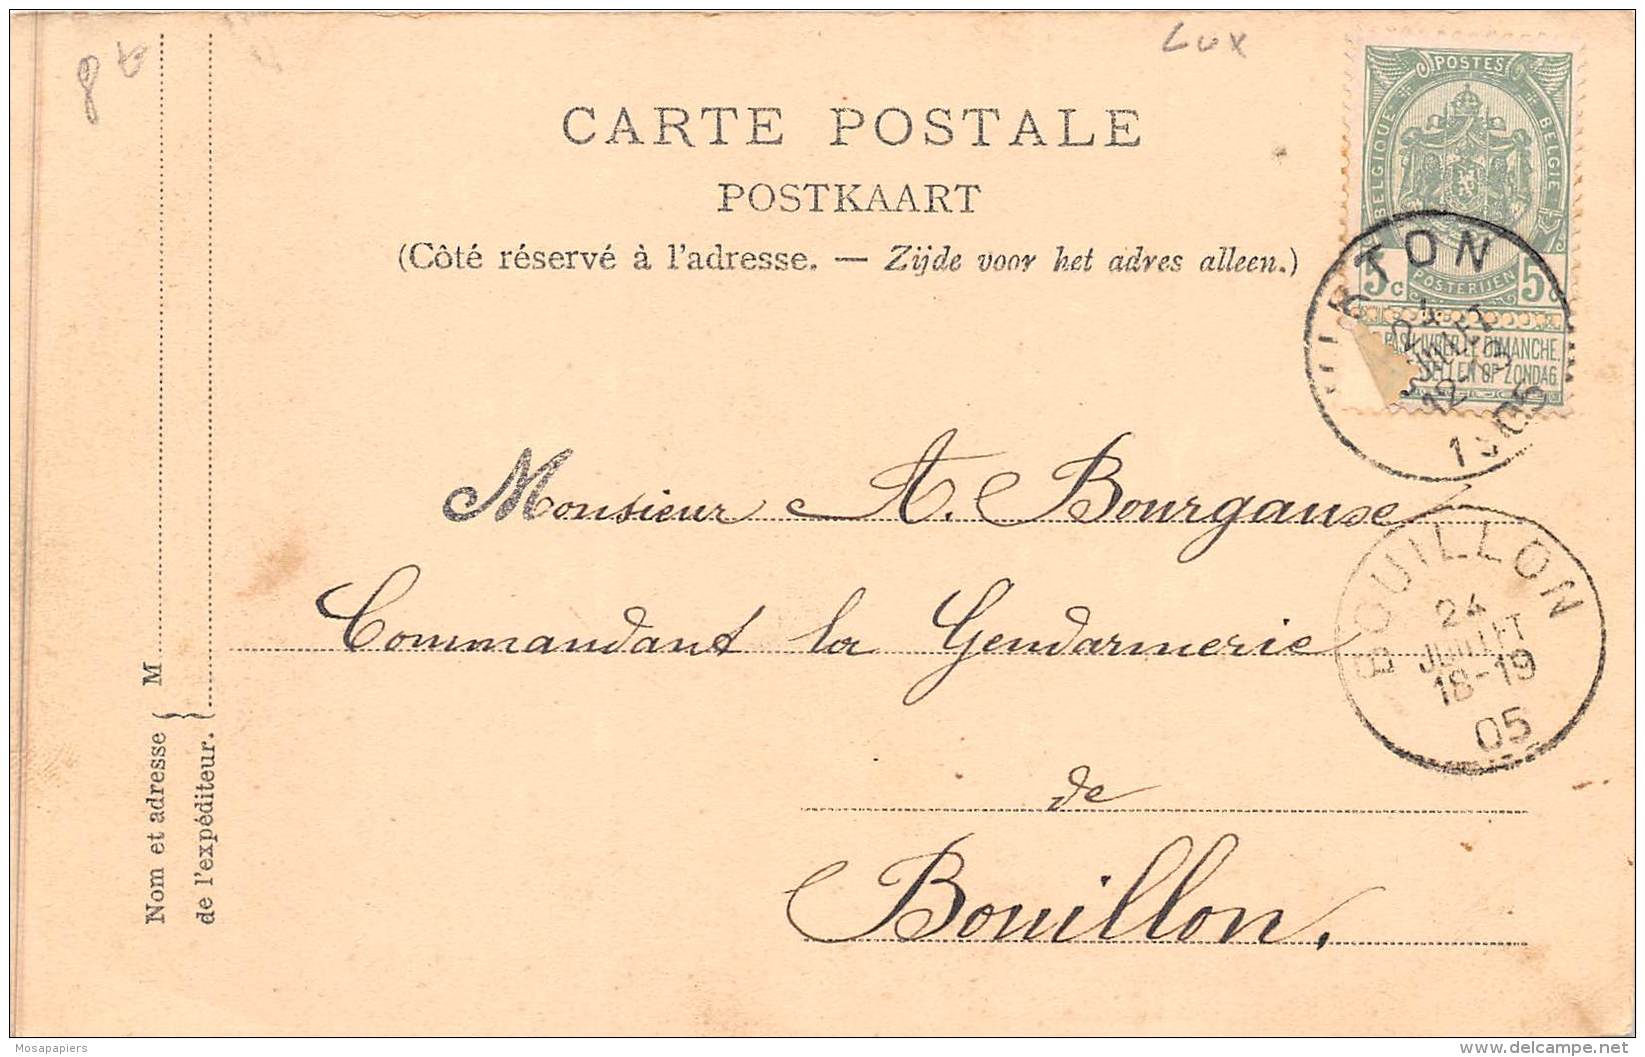 Lux
CARTE POSTALE
POSTKAART
(Côté réservé à l'adresse. — Zijde voor het adres alleen.)
POSTES
BELGIQUE
BELGIË
5c
POSTERIJEN
5c
PAS LIVRER LE DIMANCHE.
BESTELLEN OP ZONDAG
VIRTON
24
JUILLET
12-13
1905
Monsieur A. Bourganse
Commandant la Gendarmerie
de
Bouillon.
BOUILLON
24
JUILLET
18-19
05
Nom et adresse } M
de l'expéditeur.
Mosapapiers
delcampe.net